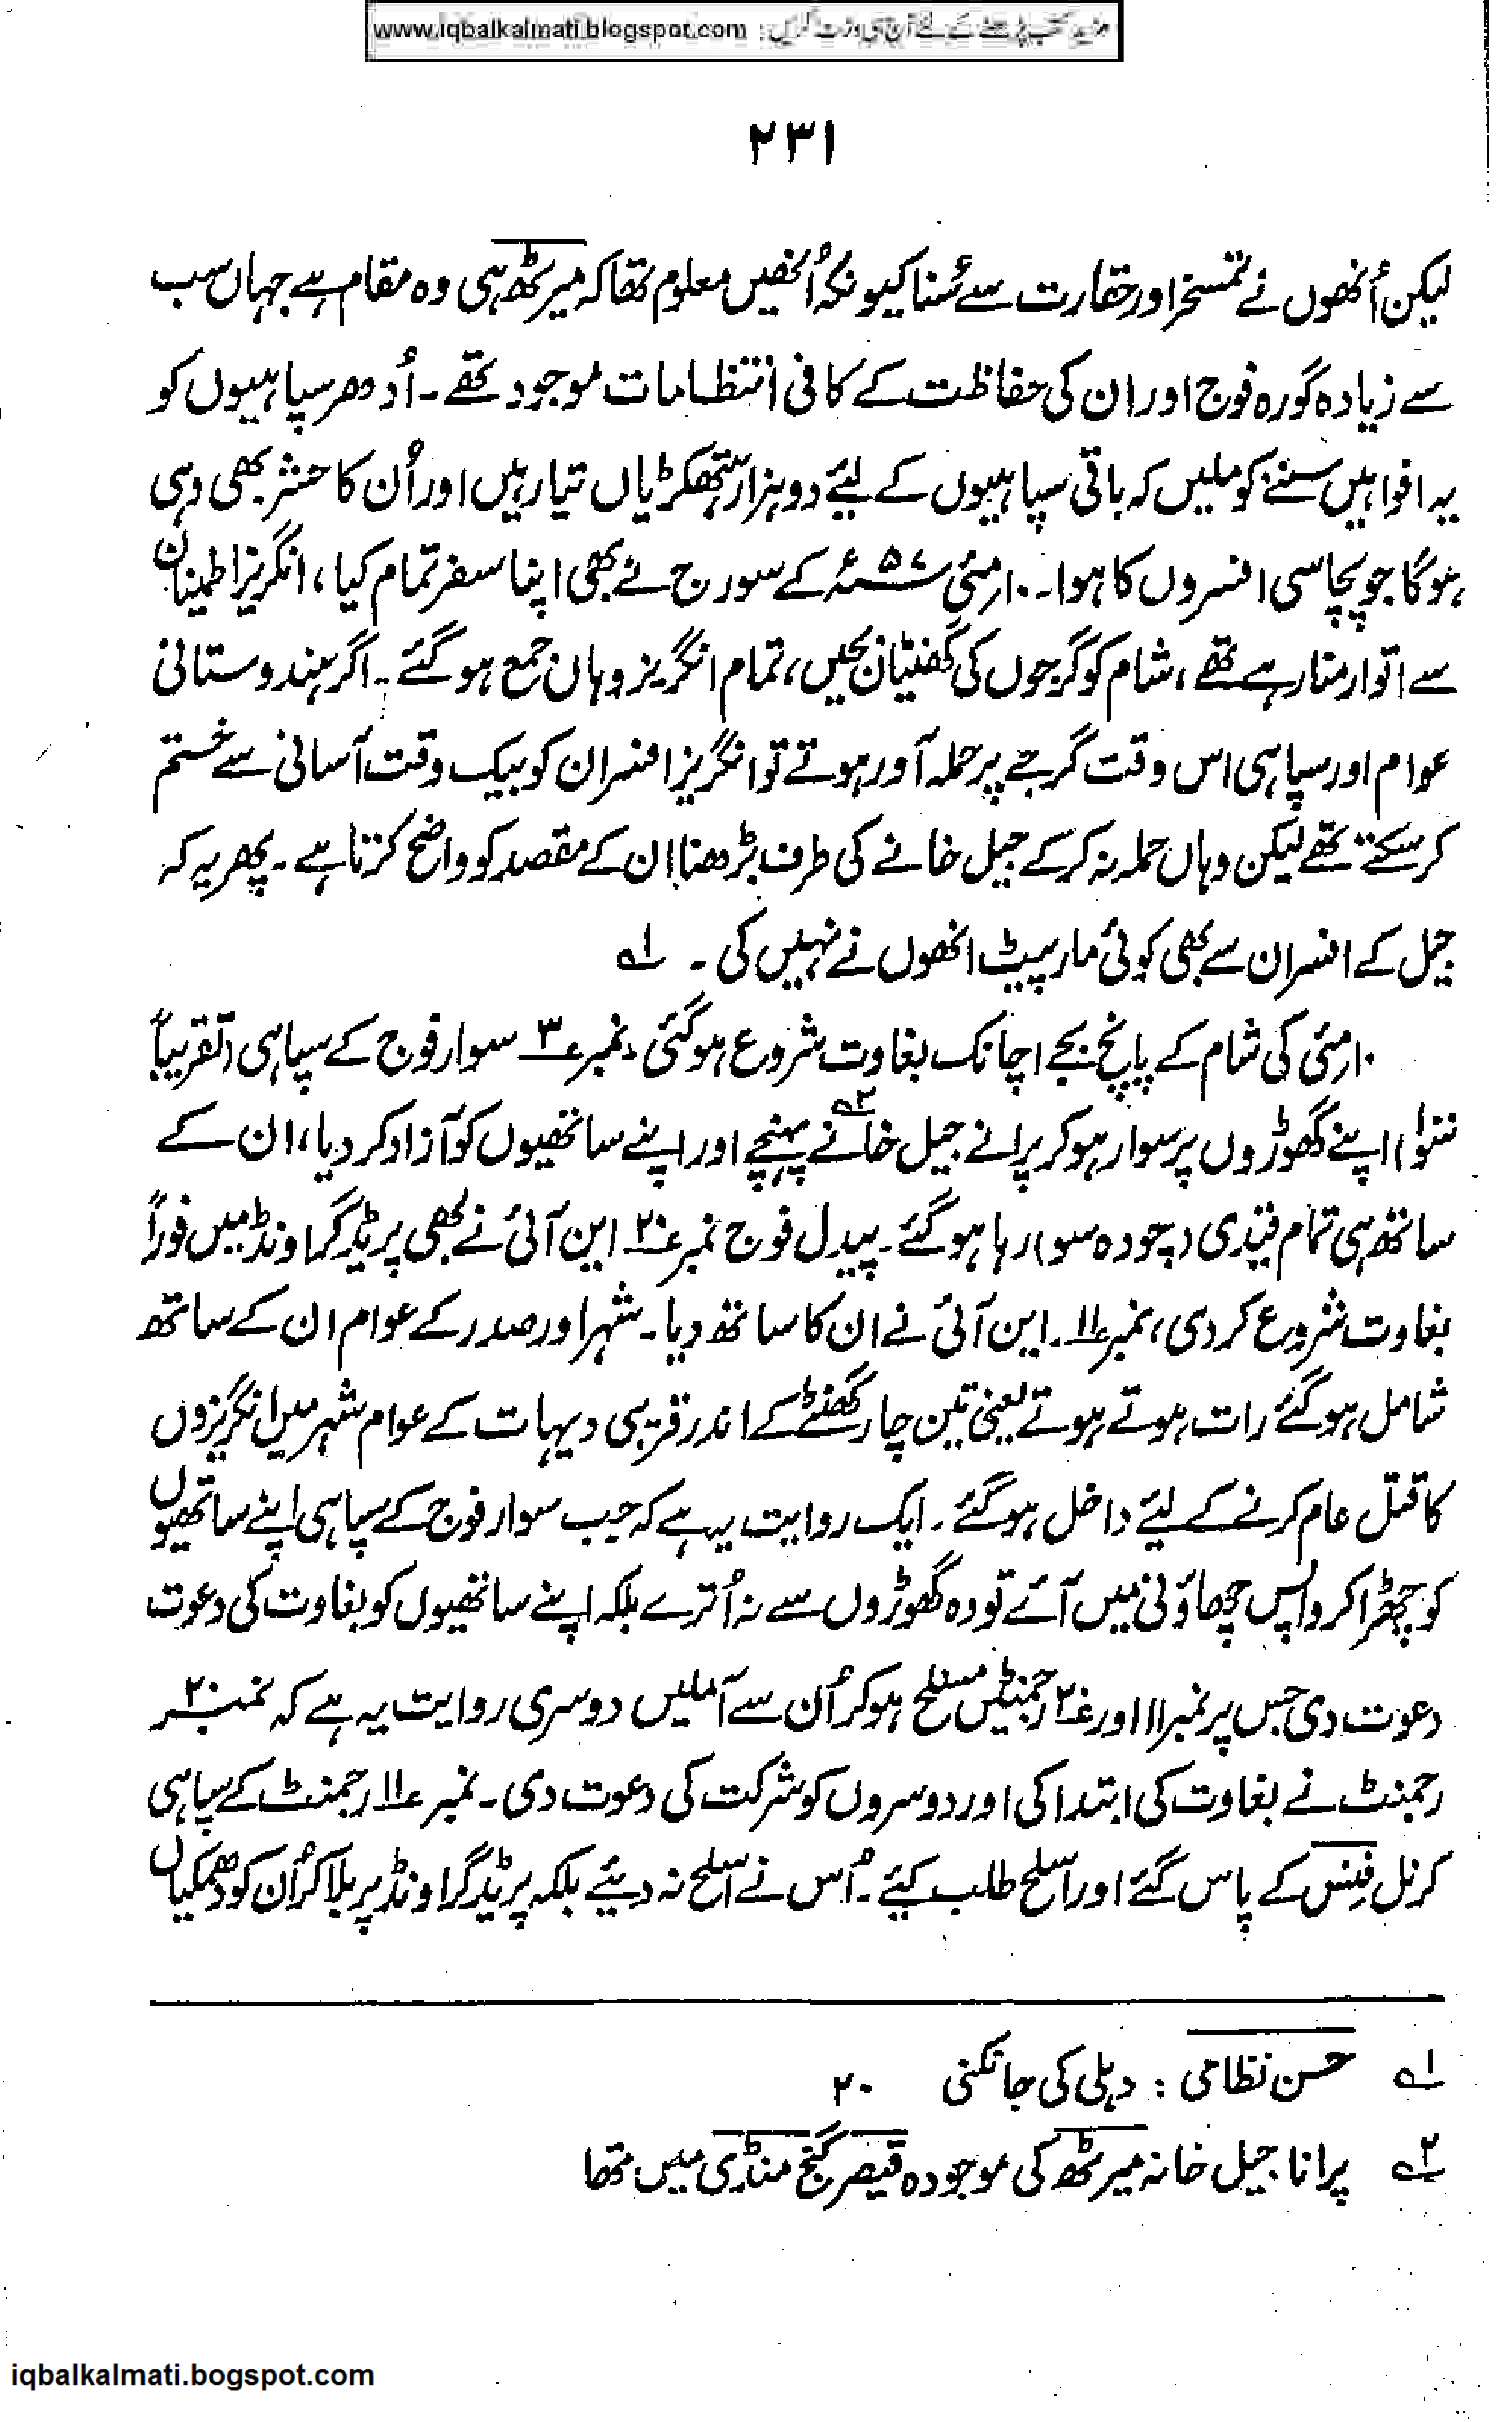 مزید کتب پڑھنے کے لئے آج ہی وزٹ کریں : www.iqbalkalmati.blogspot.com
۲۳۱
لیکن اُنھوں نے تمسخر اور حقارت سے سُنا کیونکہ اُنھیں معلوم تھا کہ میرٹھ ہی وہ مقام ہے جہاں سب
سے زیادہ گورہ فوج اور ان کی حفاظت کے کافی انتظامات موجود تھے۔ اُدھر سپاہیوں کو
یہ افواہیں سننے کو ملیں کہ باقی سپاہیوں کے لیئے دو ہزار ہتھکڑیاں تیار ہیں اور اُن کا حشر بھی وہی
ہوگا جو پچاسی افسروں کا ہوا۔ ۱۰ مئی ۵۷ء کے سورج نے بھی اپنا سفر تمام کیا، انگریز اطمینان
سے اتوار منا رہے تھے، شام کو گرجوں کی گھنٹیاں بجیں، تمام انگریز وہاں جمع ہو گئے۔ اگر ہندوستانی
عوام اور سپاہی اس وقت گرجے پر حملہ آور ہوتے تو انگریز افسران کو بیک وقت آسانی سے ختم
کر سکتے تھے لیکن وہاں حملہ نہ کر کے جیل خانے کی طرف بڑھنا ان کے مقصد کو واضح کرتا ہے۔ پھر یہ کہ
جیل کے افسران سے بھی کوئی مارپیٹ انھوں نے نہیں کی۔ ؎۱
۱۰ مئی کی شام کے پانچ بجے اچانک بغاوت شروع ہو گئی، نمبر ۳ سوار فوج کے سپاہی (تقریباً
سَو) اپنے گھوڑوں پر سوار ہو کر پرانے جیل خانے ؎۲ پہنچے اور اپنے ساتھیوں کو آزاد کر دیا، ان کے
ساتھ ہی تمام قیدی (چودہ سو) رہا ہو گئے۔ پیدل فوج نمبر ۲۰ این آئی نے بھی پریڈ گراونڈ میں فوراً
بغاوت شروع کر دی، نمبر ۱۱۔ این آئی نے ان کا ساتھ دیا۔ شہر اور صدر کے عوام ان کے ساتھ
شامل ہو گئے رات ہوتے ہوتے یعنی تین چار گھنٹے کے اندر قریبی دیہات کے عوام شہر میں انگریزوں
کا قتل عام کرنے کے لیئے داخل ہو گئے۔ ایک روایت یہ ہے کہ جب سوار فوج کے سپاہی اپنے ساتھیوں
کو چھڑا کر واپس چھاؤنی میں آئے تو وہ گھوڑوں سے نہ اُترے بلکہ اپنے ساتھیوں کو بغاوت کی دعوت
دعوت دی جس پر نمبر ۱۱ اور ۲۰ رجمنٹیں مسلح ہو کر اُن سے آ ملیں دوسری روایت یہ ہے کہ نمبر ۲۰
رجمنٹ نے بغاوت کی ابتدا کی اور دوسروں کو شرکت کی دعوت دی۔ نمبر ۱۱ رجمنٹ کے سپاہی
کرنل فِنِس کے پاس گئے اور اسلح طلب کیئے۔ اُس نے اسلح نہ دیئے بلکہ پریڈ گراونڈ پر بلا کر اُن کو دھمکیاں
؎۱ حسن نظامی : دہلی کی جانکنی ۲۰
؎۲ پرانا جیل خانہ میرٹھ کی موجودہ قیصر گنج منڈی میں تھا
iqbalkalmati.bogspot.com